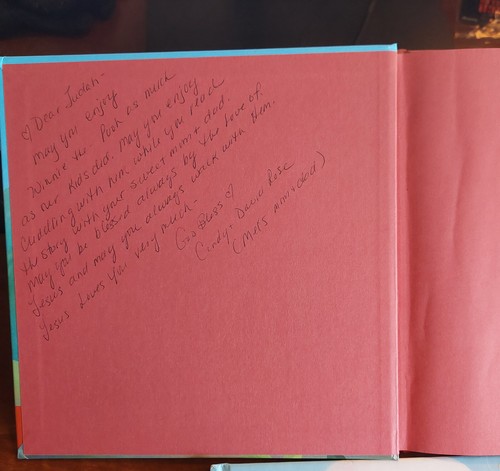 ♡ Dear Judah -
may you enjoy
Winnie the Pooh as much
as our kids did. May you enjoy
cuddling with him while you read
the story with your sweet mom & dad.
May you be blessed always by the love of
Jesus and may you always walk with Him.
Jesus loves you very much.
God Bless ♡
Cindy & David Rose
(Mel's mom & dad)